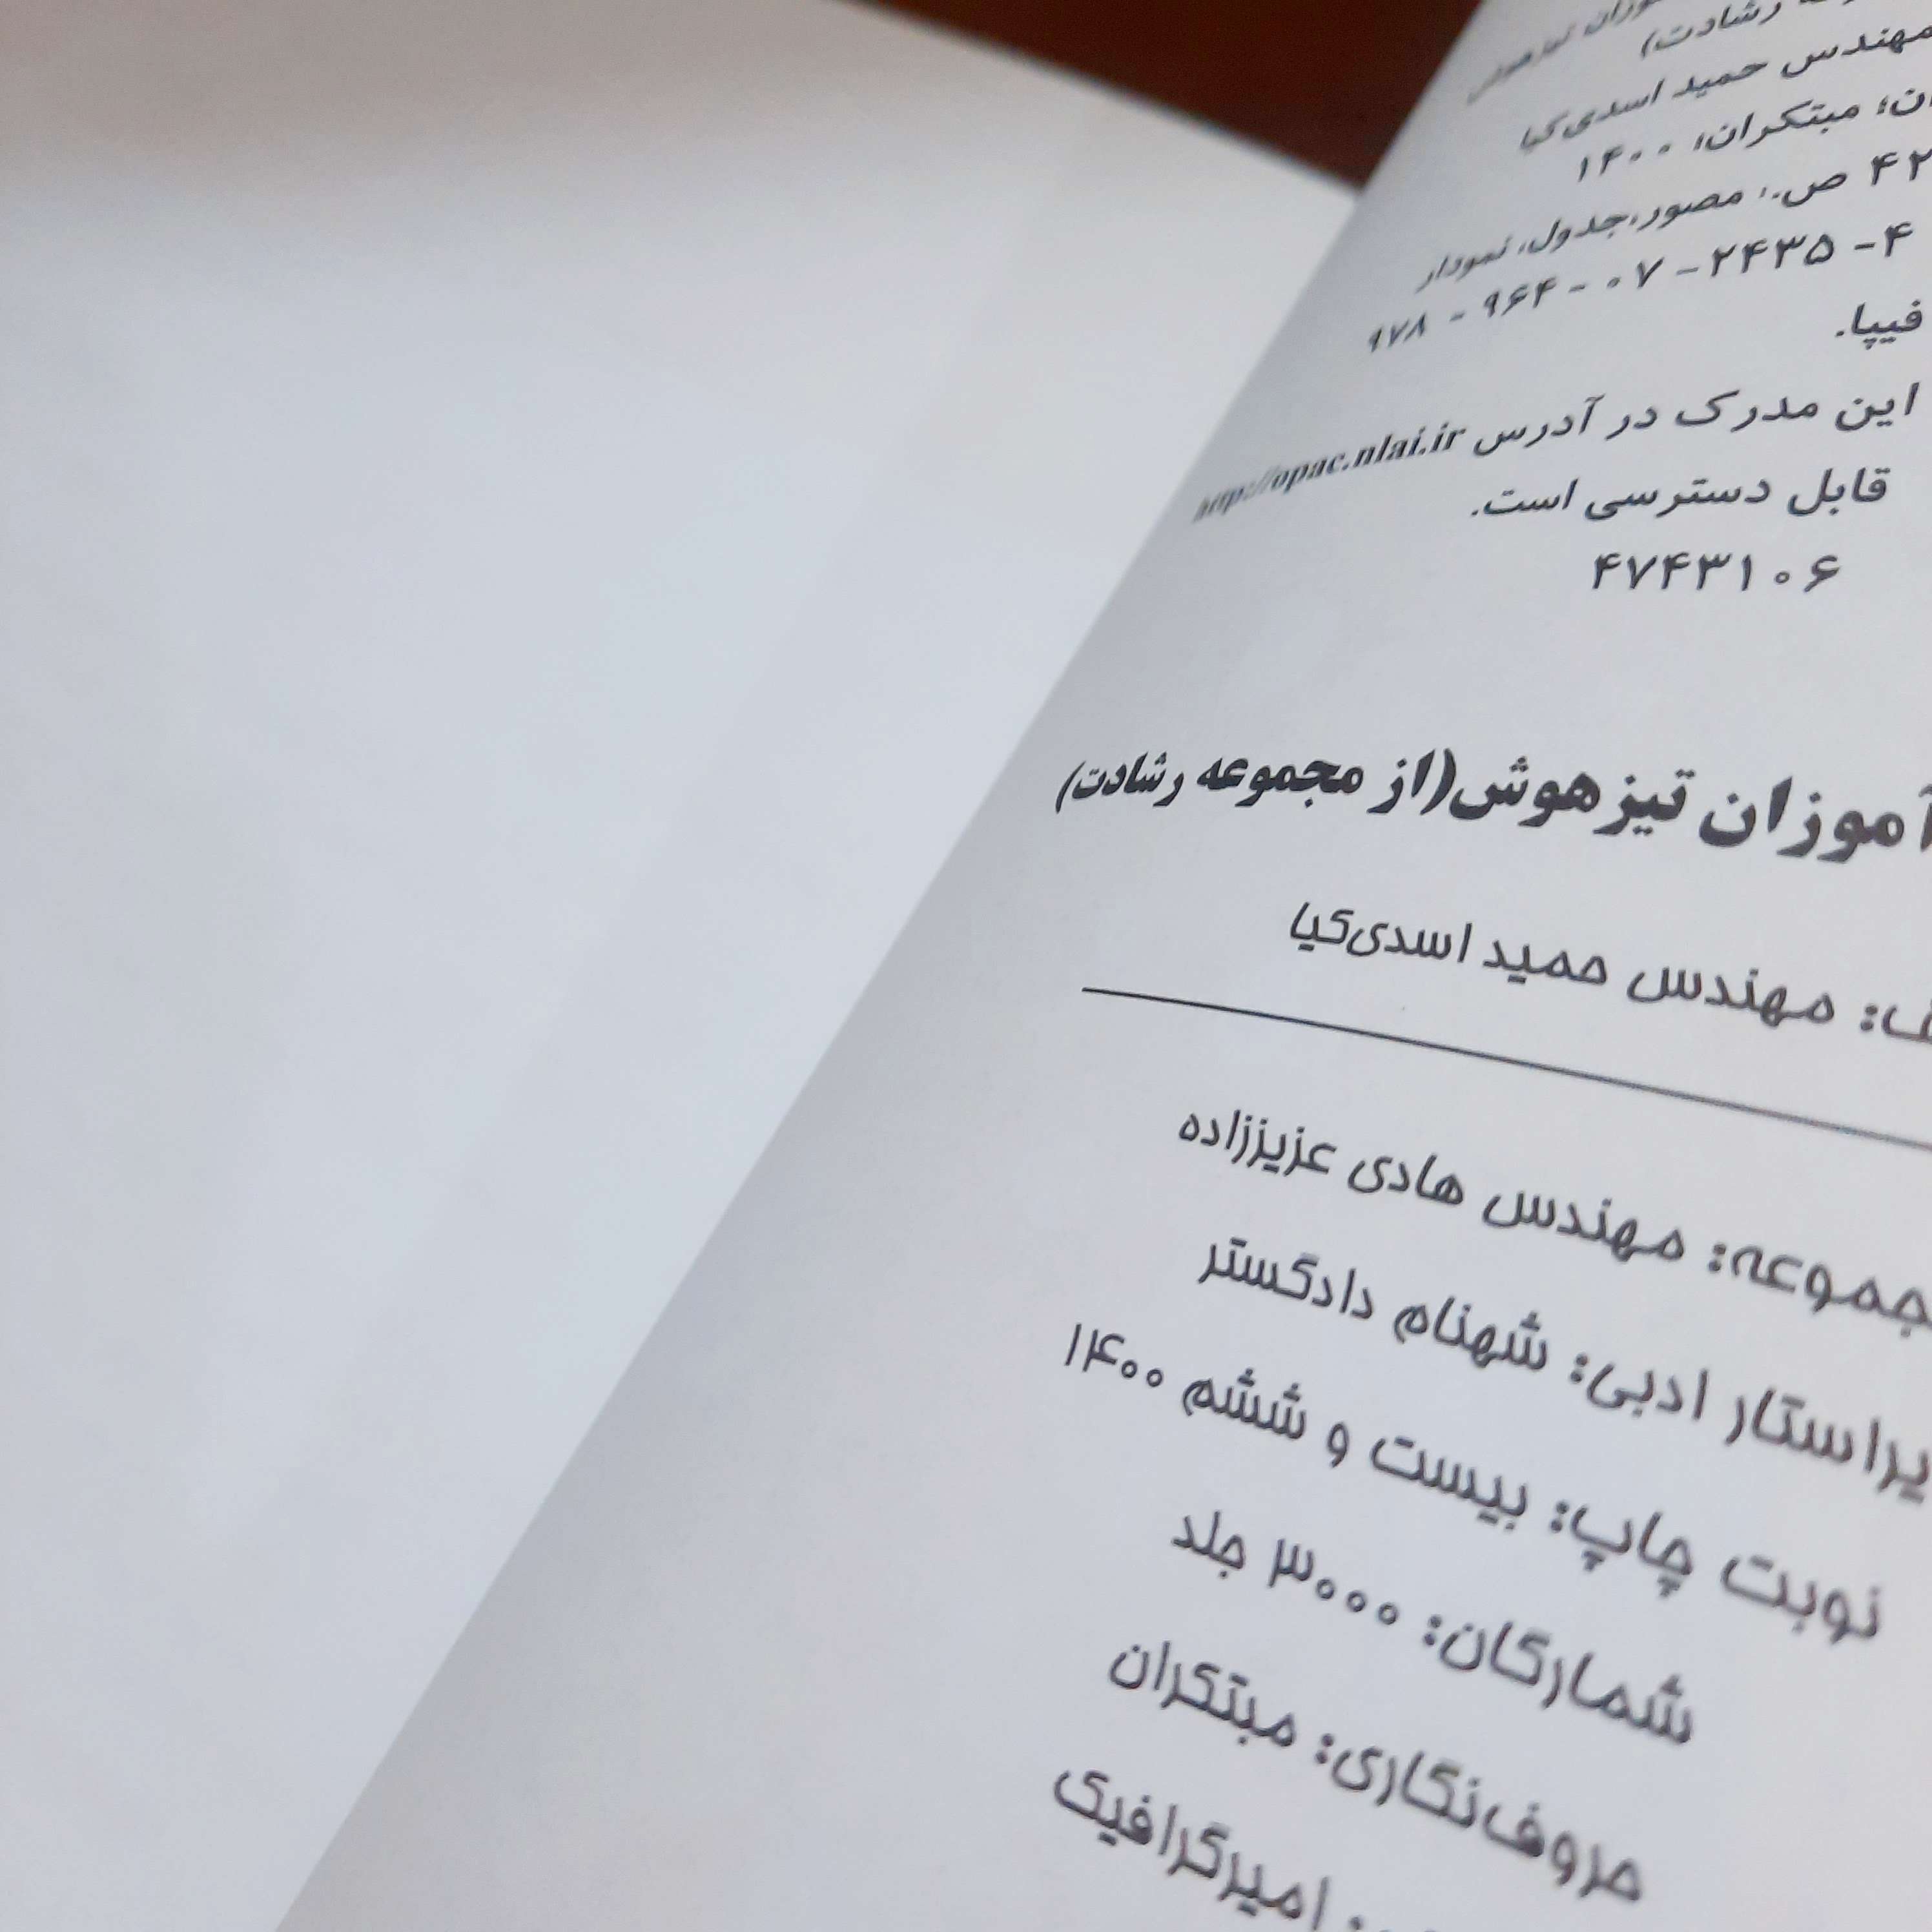 رشادت)
مهندس حمید اسدی‌کیا
مبتکران، ۱۴۰۰
ص.: مصور، جدول، نمودار
۹۷۸ - ۹۶۴ - ۰۷ - ۲۴۳۵ - ۴
فیپا.
این مدرک در آدرس http://opac.nlai.ir
قابل دسترسی است.
۴۷۴۳۱۰۶
آموزان تیزهوش(از مجموعه رشادت)
مهندس حمید اسدی‌کیا
مهندس هادی عزیززاده
ادبی: شهنام دادگستر
نوبت چاپ: بیست و ششم ۱۴۰۰
شمارگان: ۳۰۰۰ جلد
حروف‌نگاری: مبتکران
امیرگرافیک